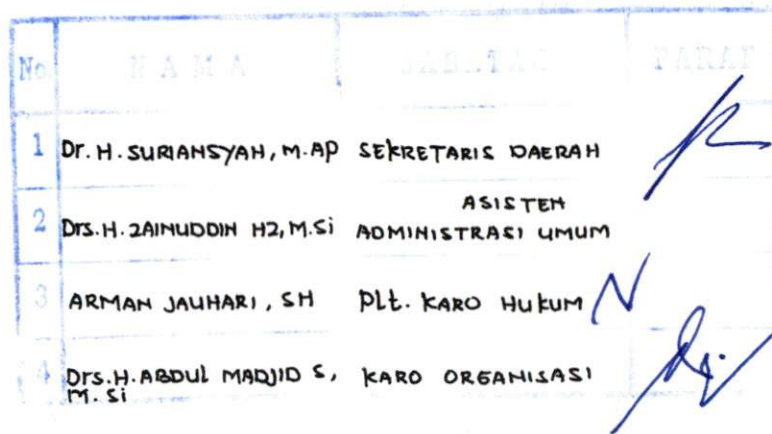 No. NAMA JABATAN PARAF
1 Dr. H. SURIANSYAH, M.AP SEKRETARIS DAERAH
2 Drs. H. ZAINUDDIN HZ, M.Si ASISTEN
ADMINISTRASI UMUM
3 ARMAN JAUHARI, SH Plt. KARO HUKUM
4 Drs. H. ABDUL MADJID S, KARO ORGANISASI
M.Si